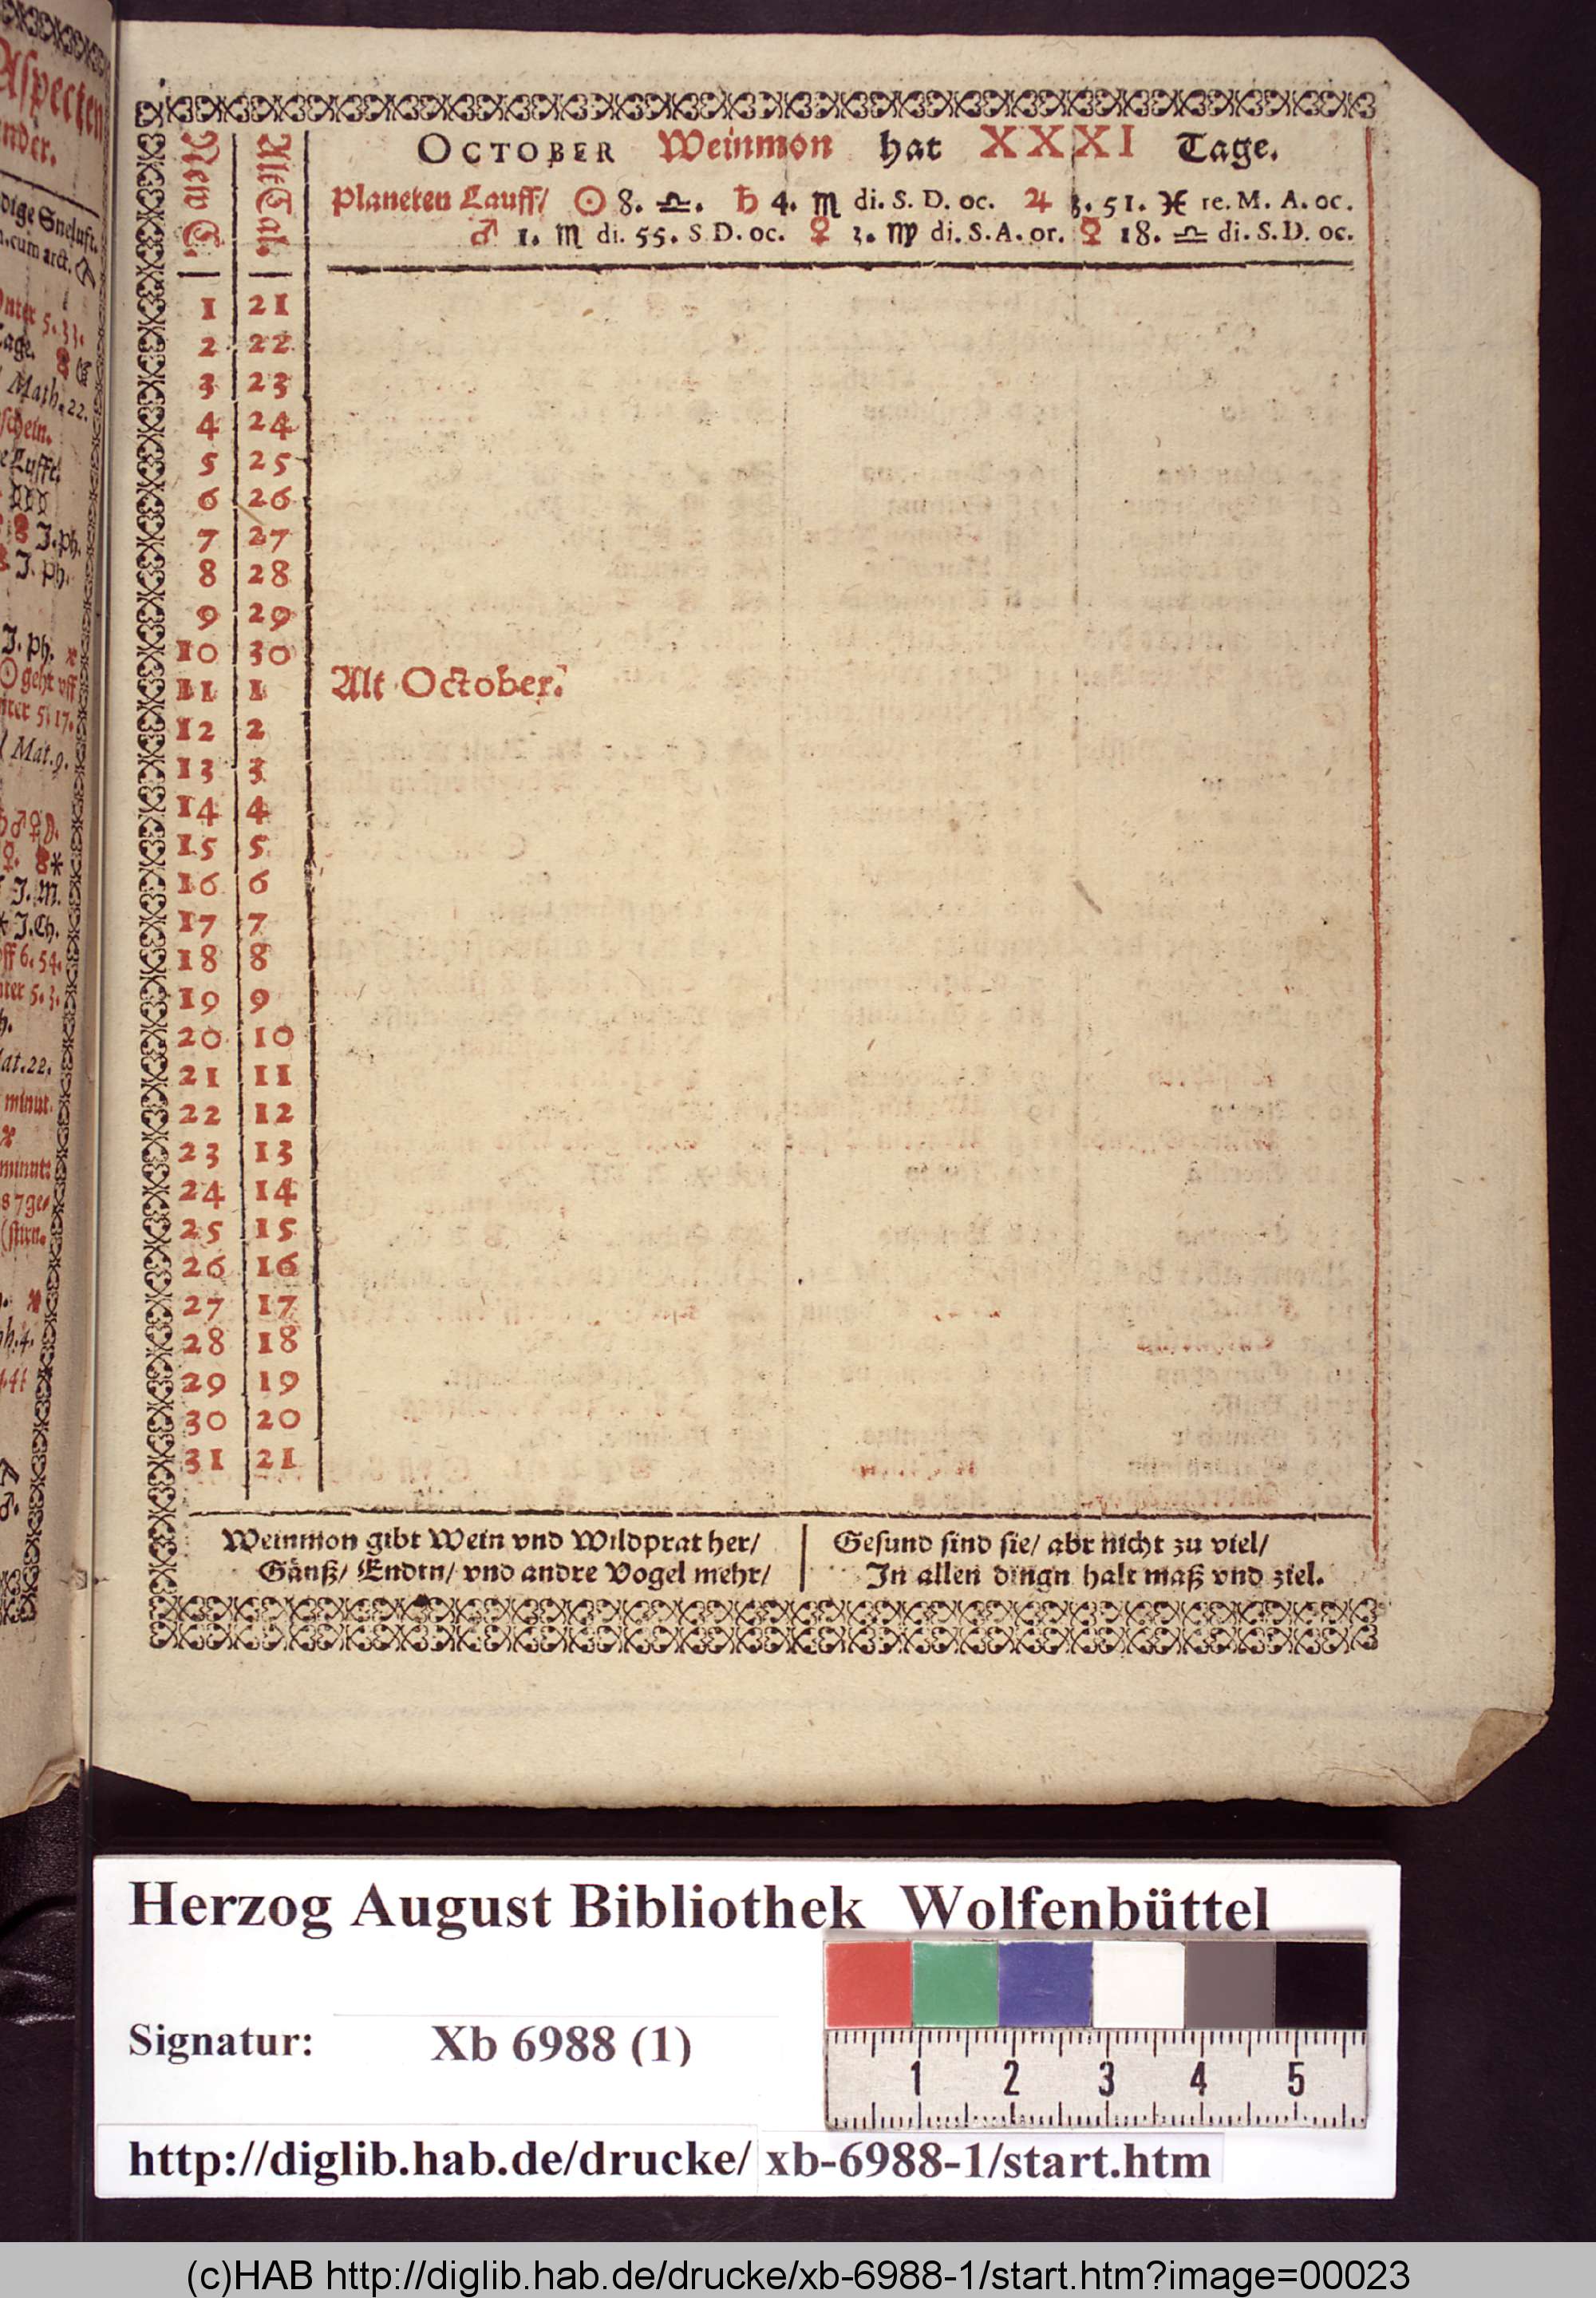 Aspecten
nder.
dige Sneluft.
n. cum arct.
Unter 5. 33.
Tage.
Math. 22.
schein.
e Lufft/
J. Ph.
J. Ph.
J. Ph.
☉ geht uff
nter 5. 17.
Mat. 9.
♄ ♂ ♀
J. M.
J. Ch.
uff 6. 54.
nter 5. 3.
at. 22.
minut.
minut:
87 ge/
(stirn.
h. 4.
New C. Alt Cal.
OCTOBER Weinmon hat XXXI Tage.
Planeten Lauff/ ☉ 8. ♎. ♄ 4. ♏ di. S. D. oc. ♃ 3. 51. ♓ re. M. A. oc.
♂ 1. ♏ di. 55. S D. oc. ♀ 3. ♍ di. S. A. or. ☿ 18. ♎ di. S. D. oc.
1 21
2 22
3 23
4 24
5 25
6 26
7 27
8 28
9 29
10 30
11 1 Alt October.
12 2
13 3
14 4
15 5
16 6
17 7
18 8
19 9
20 10
21 11
22 12
23 13
24 14
25 15
26 16
27 17
28 18
29 19
30 20
31 21
Weinmon gibt Wein vnd Wildprat her/
Gänß/ Endtn/ vnd andre Vogel mehr/
Gesund sind sie/ abr nicht zu viel/
In allen dingn halt maß vnd ziel.
Herzog August Bibliothek Wolfenbüttel
Signatur: Xb 6988 (1)
1 2 3 4 5
http://diglib.hab.de/drucke/ xb-6988-1/start.htm
(c)HAB http://diglib.hab.de/drucke/xb-6988-1/start.htm?image=00023